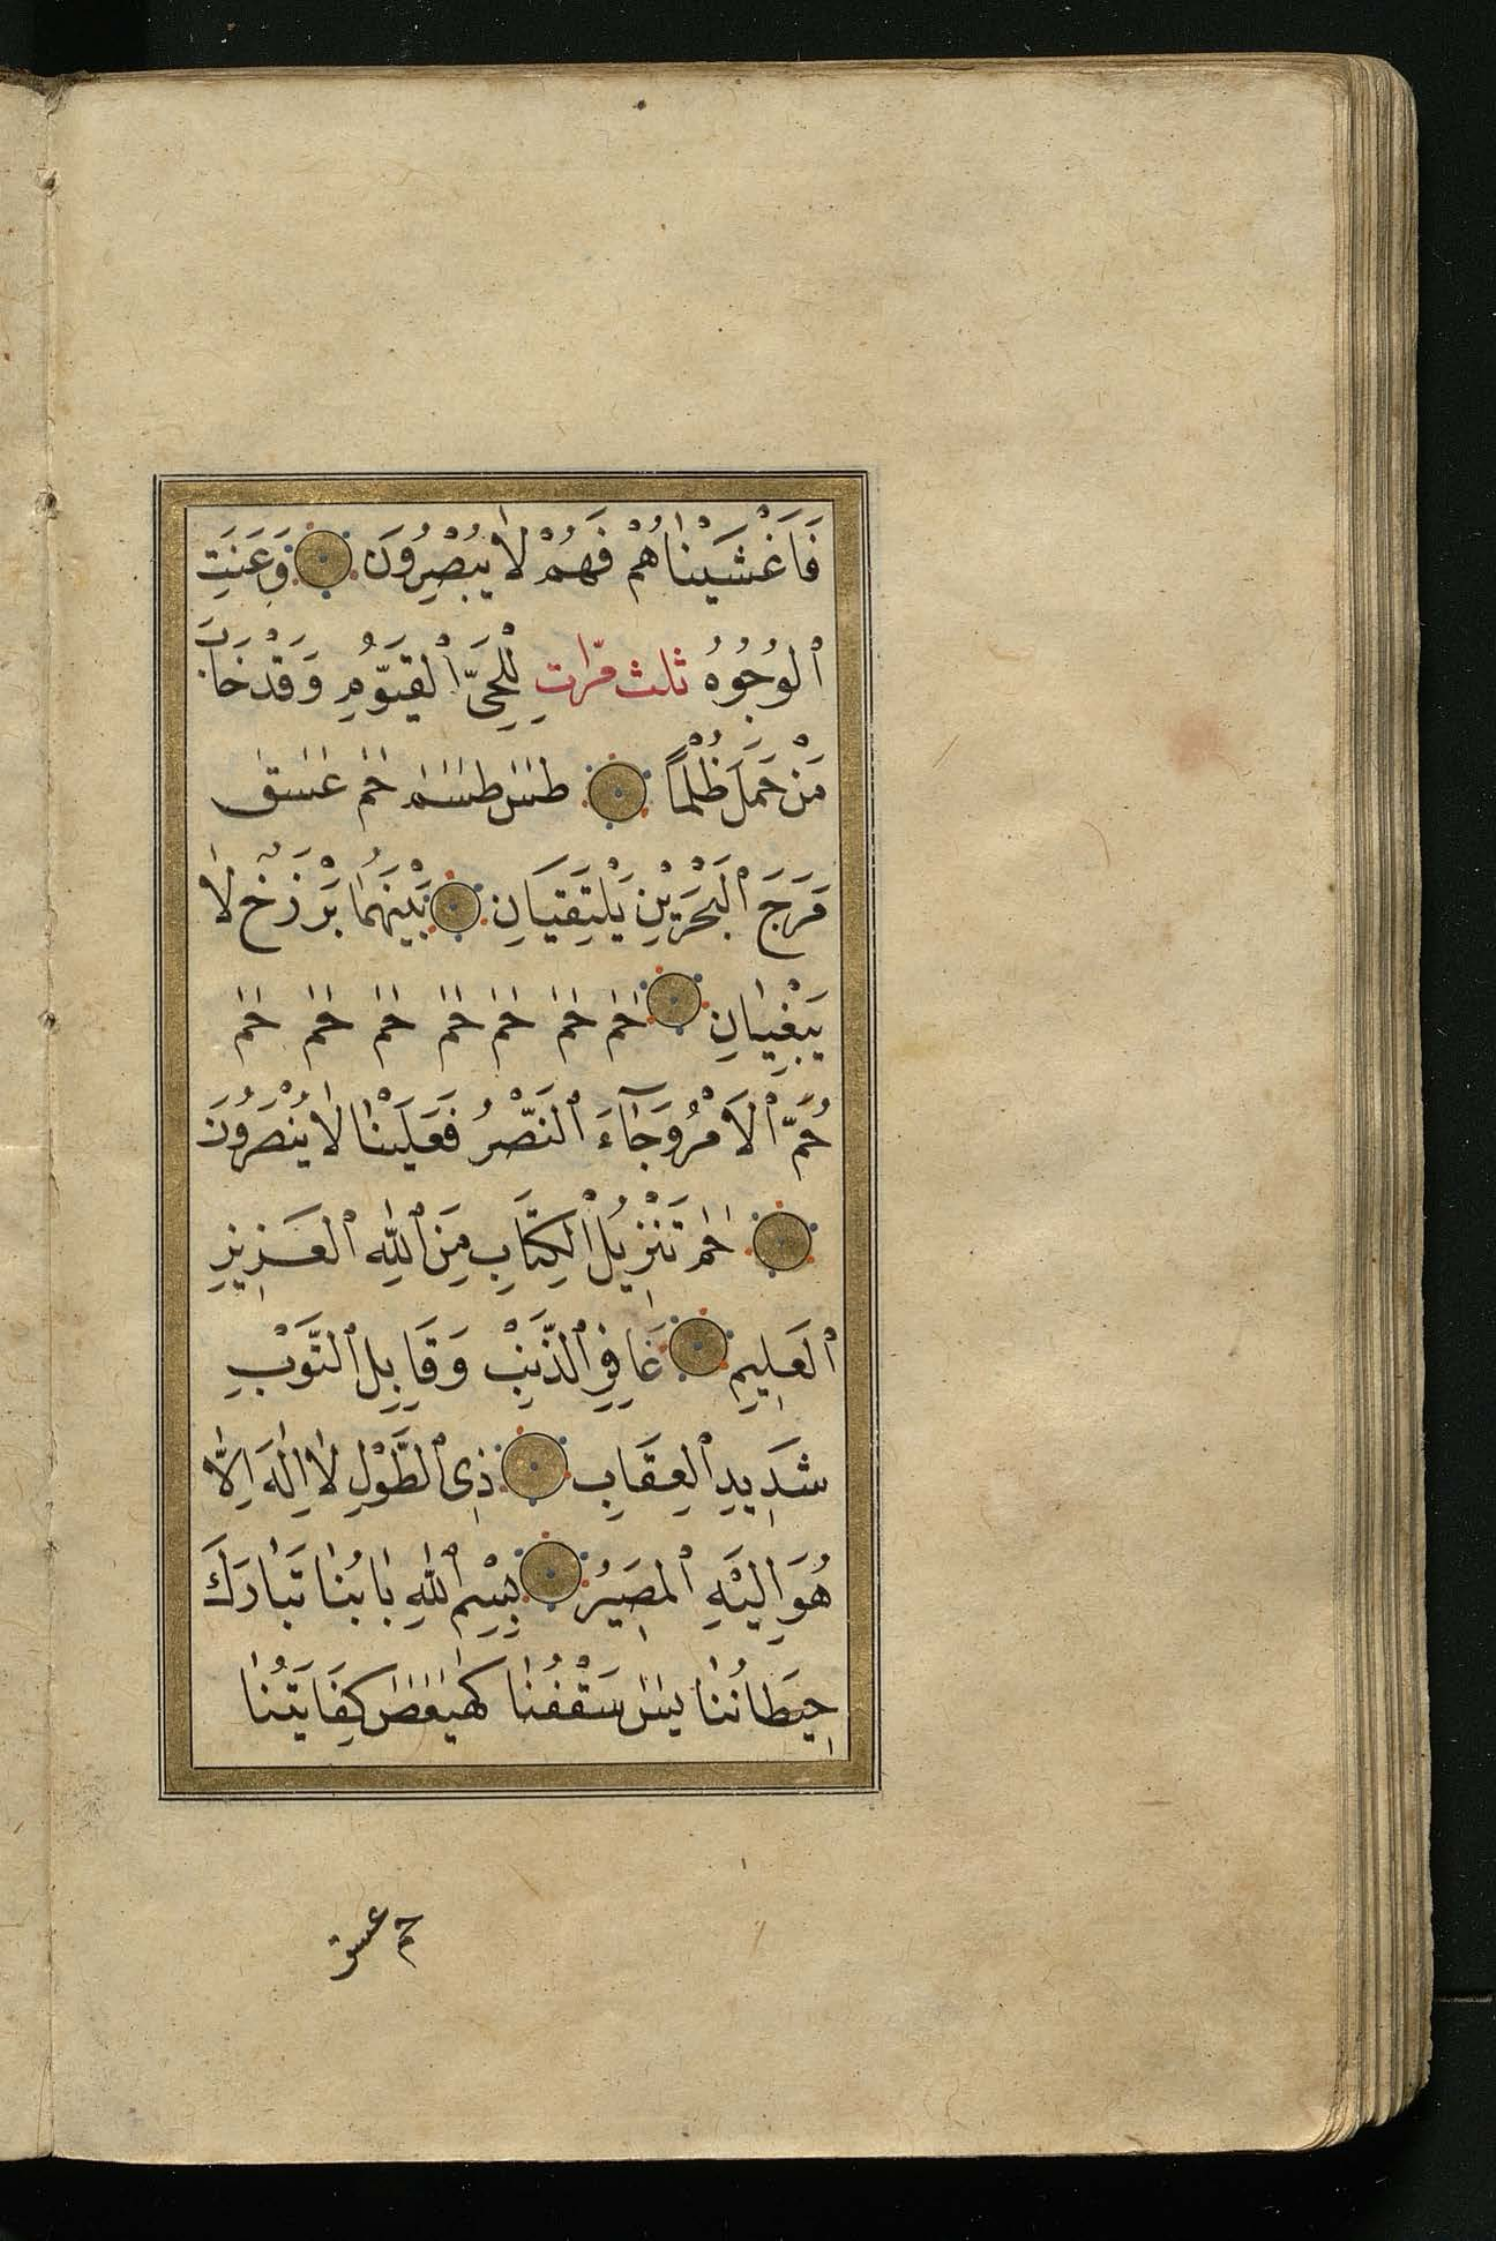 فَاَغْشَيْنَاهُمْ فَهُمْ لَا يُبْصِرُونَ وَعَنَتِ
الْوُجُوهُ ثلث مرّات لِلْحَيِّ الْقَيُّومِ وَقَدْ خَابَ
مَنْ حَمَلَ ظُلْمًا طٰسٓ طٰسٓمٓ حٰمٓ عٓسٓقٓ
مَرَجَ الْبَحْرَيْنِ يَلْتَقِيَانِ بَيْنَهُمَا بَرْزَخٌ لَا
يَبْغِيَانِ حٰم حٰم حٰم حٰم حٰم حٰم حٰم
حُمَّ الْاَمْرُ وَجَآءَ النَّصْرُ فَعَلَيْنَا لَا يُنْصَرُونَ
حٰم تَنْزِيلُ الْكِتَابِ مِنَ اللهِ الْعَزِيزِ
الْعَلِيمِ غَافِرِ الذَّنْبِ وَقَابِلِ التَّوْبِ
شَدِيدِ الْعِقَابِ ذِي الطَّوْلِ لَا اِلٰهَ اِلَّا
هُوَ اِلَيْهِ الْمَصِيرُ بِسْمِ اللهِ بَابُنَا تَبَارَكَ
حِيطَانُنَا يٰسٓ سَقْفُنَا كٓهٰيٰعٓصٓ كِفَايَتُنَا
حم عسق